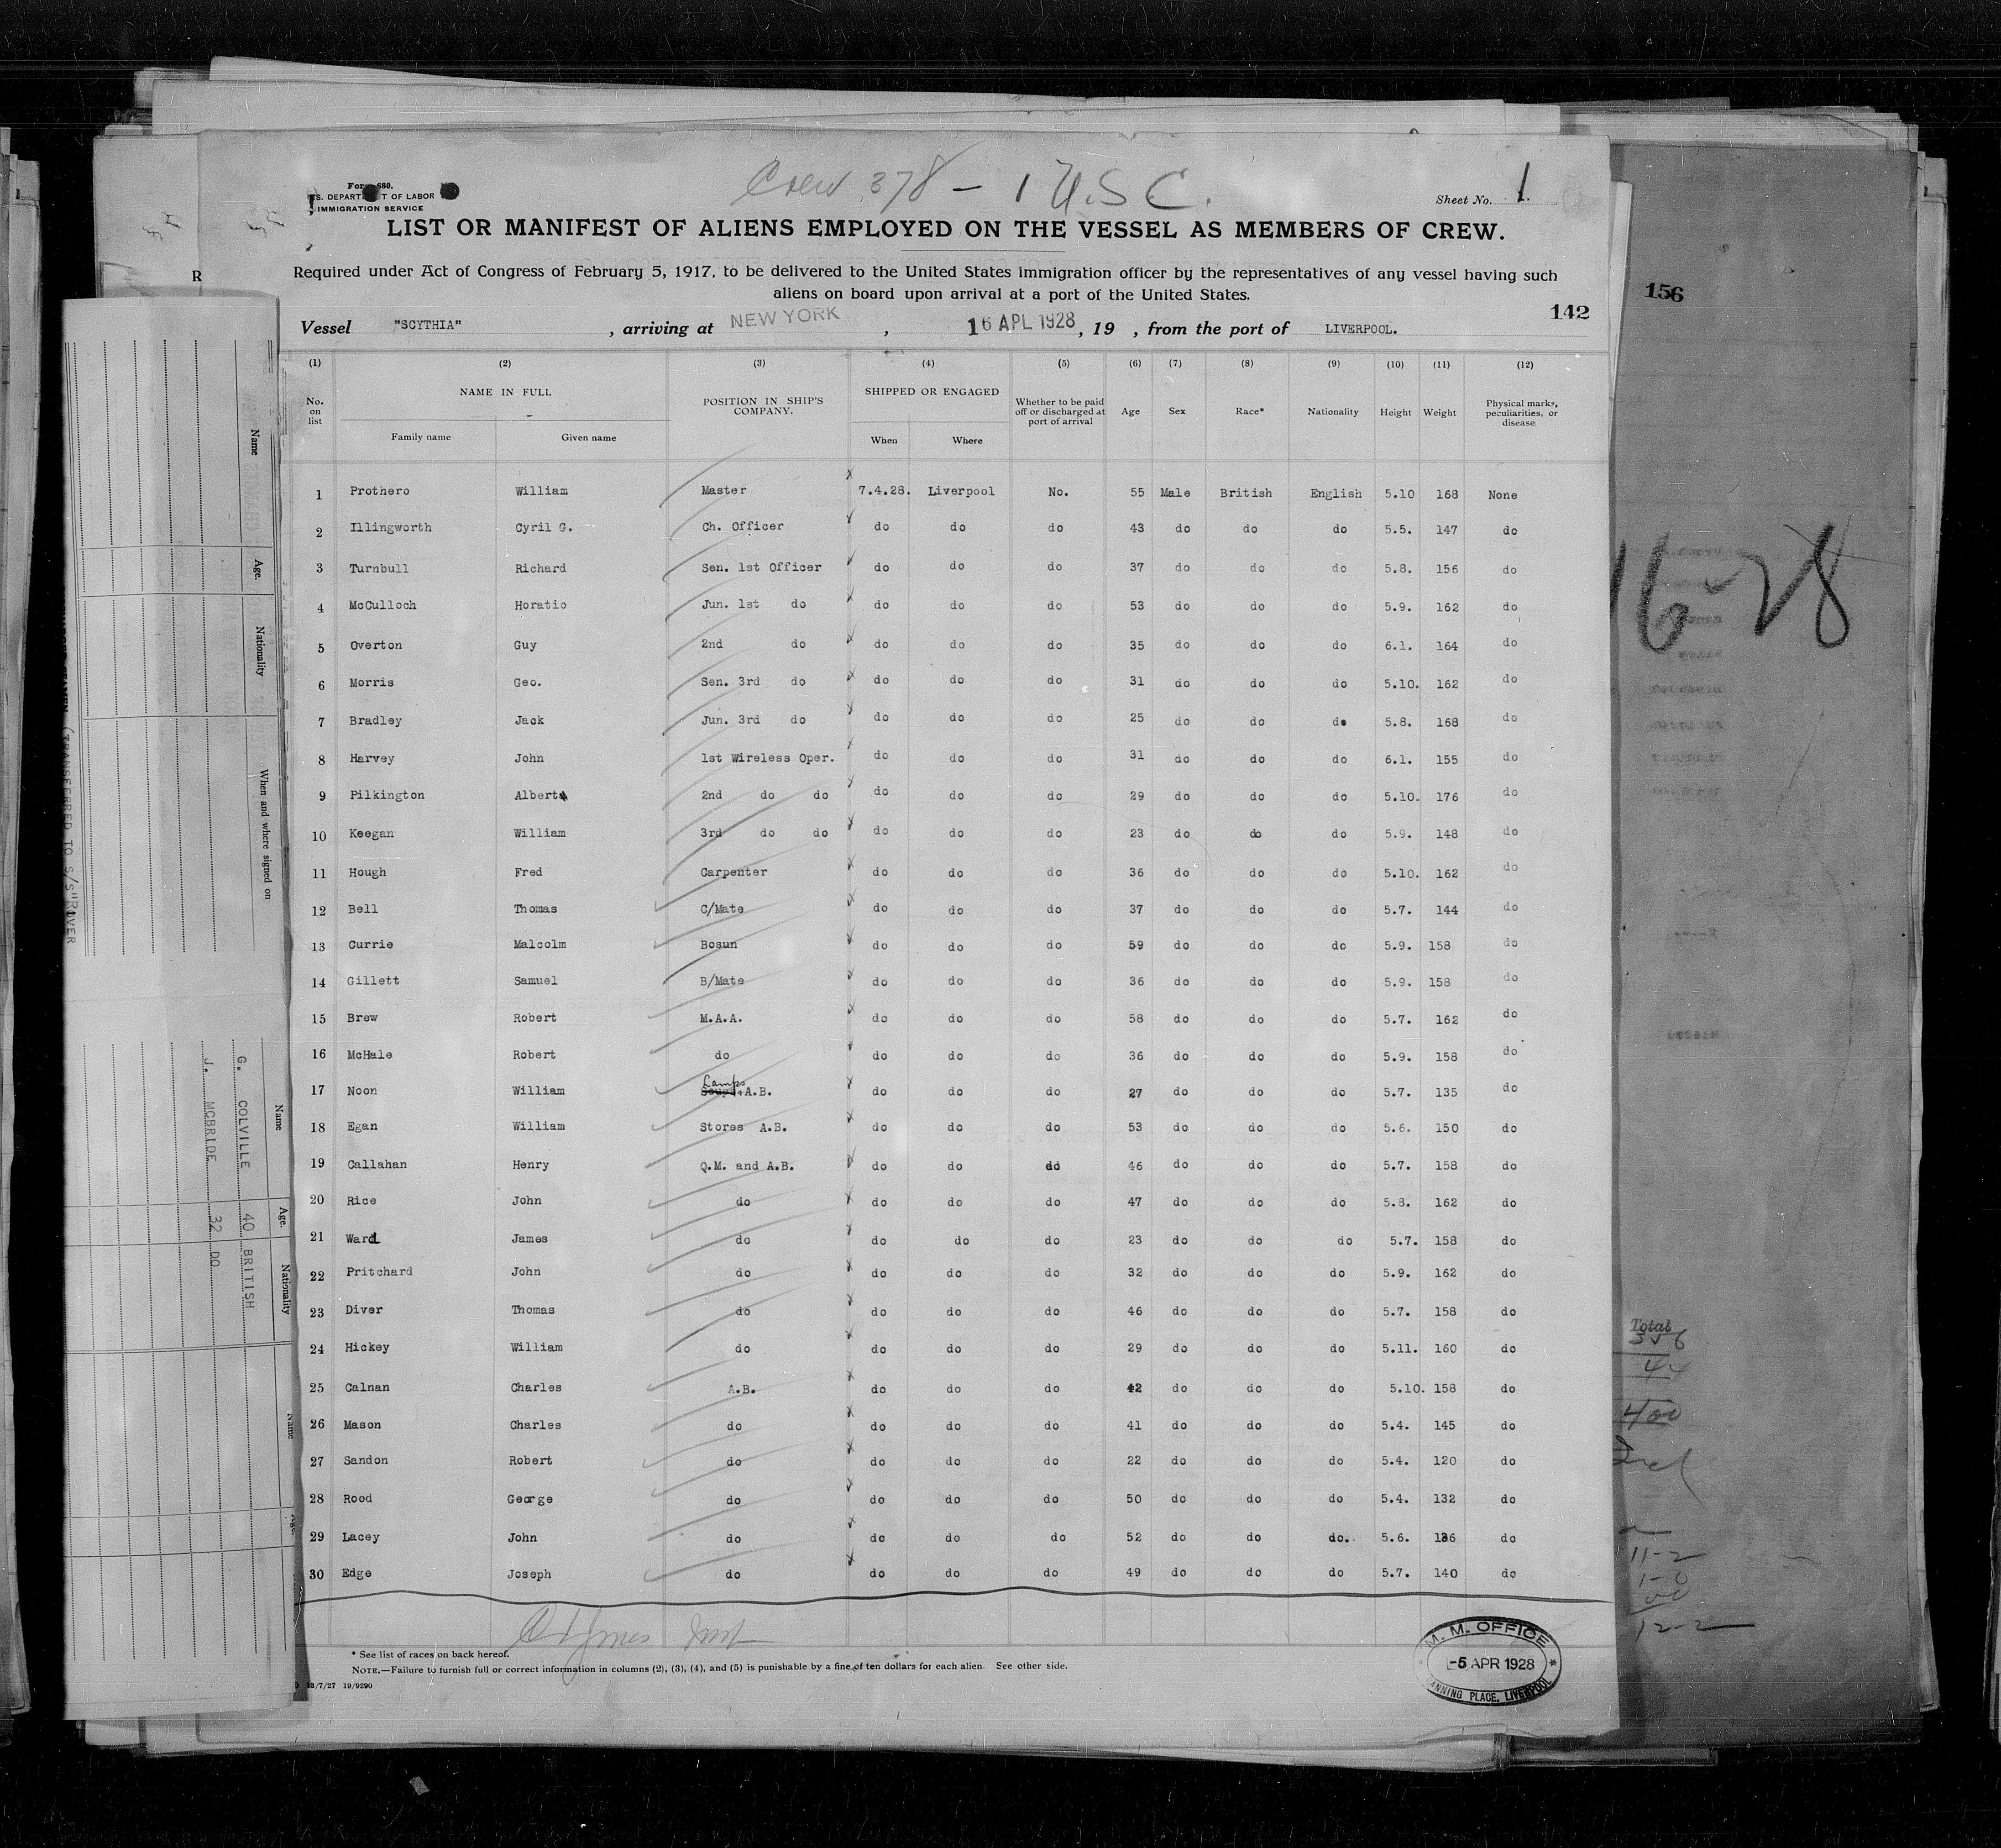 Crew 378 - 1 U.S.C.
Form 680.
U.S. DEPARTMENT OF LABOR
IMMIGRATION SERVICE
Sheet No. 1.
LIST OR MANIFEST OF ALIENS EMPLOYED ON THE VESSEL AS MEMBERS OF CREW.
Required under Act of Congress of February 5, 1917, to be delivered to the United States immigration officer by the representatives of any vessel having such
aliens on board upon arrival at a port of the United States.
142
Vessel "SCYTHIA", arriving at NEW YORK, 16 APL 1928, 19 , from the port of LIVERPOOL.
(1) (2) (3) (4) (5) (6) (7) (8) (9) (10) (11) (12)
No. on list NAME IN FULL Family name Given name POSITION IN SHIP'S COMPANY. SHIPPED OR ENGAGED When Where Whether to be paid off or discharged at port of arrival Age Sex Race* Nationality Height Weight Physical marks, peculiarities, or disease
1 Prothero William Master 7.4.28. Liverpool No. 55 Male British English 5.10 168 None
2 Illingworth Cyril G. Ch. Officer do do do 43 do do do 5.5. 147 do
3 Turnbull Richard Sen. 1st Officer do do do 37 do do do 5.8. 156 do
4 McCulloch Horatio Jun. 1st do do do do 53 do do do 5.9. 162 do
5 Overton Guy 2nd do do do do 35 do do do 6.1. 164 do
6 Morris Geo. Sen. 3rd do do do do 31 do do do 5.10. 162 do
7 Bradley Jack Jun. 3rd do do do do 25 do do do 5.8. 168 do
8 Harvey John 1st Wireless Oper. do do do 31 do do do 6.1. 155 do
9 Pilkington Albert 2nd do do do do do 29 do do do 5.10. 176 do
10 Keegan William 3rd do do do do do 23 do do do 5.9. 148 do
11 Hough Fred Carpenter do do do 36 do do do 5.10. 162 do
12 Bell Thomas C/Mate do do do 37 do do do 5.7. 144 do
13 Currie Malcolm Bosun do do do 59 do do do 5.9. 158 do
14 Gillett Samuel B/Mate do do do 36 do do do 5.9. 158 do
15 Brew Robert M.A.A. do do do 58 do do do 5.7. 162 do
16 McHale Robert do do do do 36 do do do 5.9. 158 do
17 Noon William Lamps A.B. do do do 27 do do do 5.7. 135 do
18 Egan William Stores A.B. do do do 53 do do do 5.6. 150 do
19 Callahan Henry Q.M. and A.B. do do do 46 do do do 5.7. 158 do
20 Rice John do do do do 47 do do do 5.8. 162 do
21 Ward James do do do do 23 do do do 5.7. 158 do
22 Pritchard John do do do do 32 do do do 5.9. 162 do
23 Diver Thomas do do do do 46 do do do 5.7. 158 do
24 Hickey William do do do do 29 do do do 5.11. 160 do
25 Calnan Charles A.B. do do do 42 do do do 5.10. 158 do
26 Mason Charles do do do do 41 do do do 5.4. 145 do
27 Sandon Robert do do do do 22 do do do 5.4. 120 do
28 Rood George do do do do 50 do do do 5.4. 132 do
29 Lacey John do do do do 52 do do do. 5.6. 136 do
30 Edge Joseph do do do do 49 do do do 5.7. 140 do
* See list of races on back hereof.
NOTE.—Failure to furnish full or correct information in columns (2), (3), (4), and (5) is punishable by a fine of ten dollars for each alien. See other side.
13/7/27 19/9290
M. M. OFFICE
-5 APR 1928
CANNING PLACE, LIVERPOOL
Name
Age.
Nationality
When and where signed on
(TRANSFERRED TO S/S "RIVER
Name
Age.
Nationality
G. COLVILLE 40 BRITISH
J. MCBRIDE 32 DO
Name
Age.
R
156
16-28
Total
356
44
400
11-2
1-0
12-2